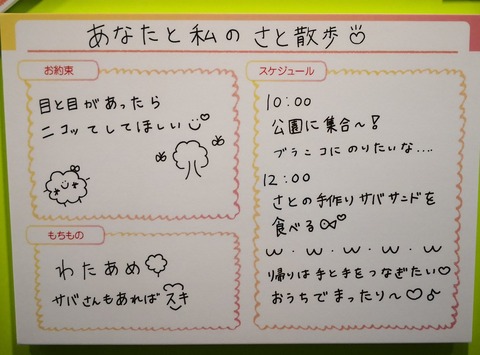 あなたと私のさと散歩
お約束
目と目があったら
ニコッてしてほしい
もちもの
わたあめ
サバさんもあればスキ
スケジュール
10:00
公園に集合~!
ブランコにのりたいな....
12:00
さとの手作りサバサンドを
食べる
w・w・w・w・w
帰りは手と手をつなぎたい♡
おうちでまったり~♡♪